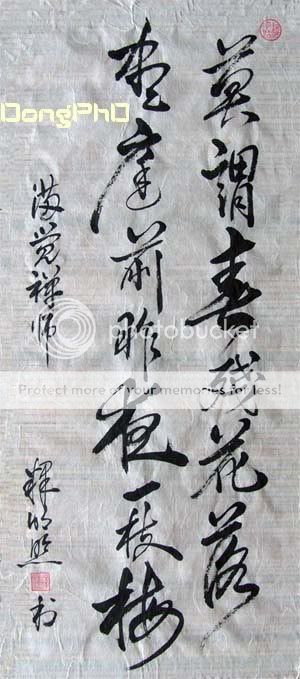 莫謂春殘花落
盡庭前昨夜一枝梅
滿覺禪師
釋 照
DongPhD
photobucket
Protect more of your memories for less!